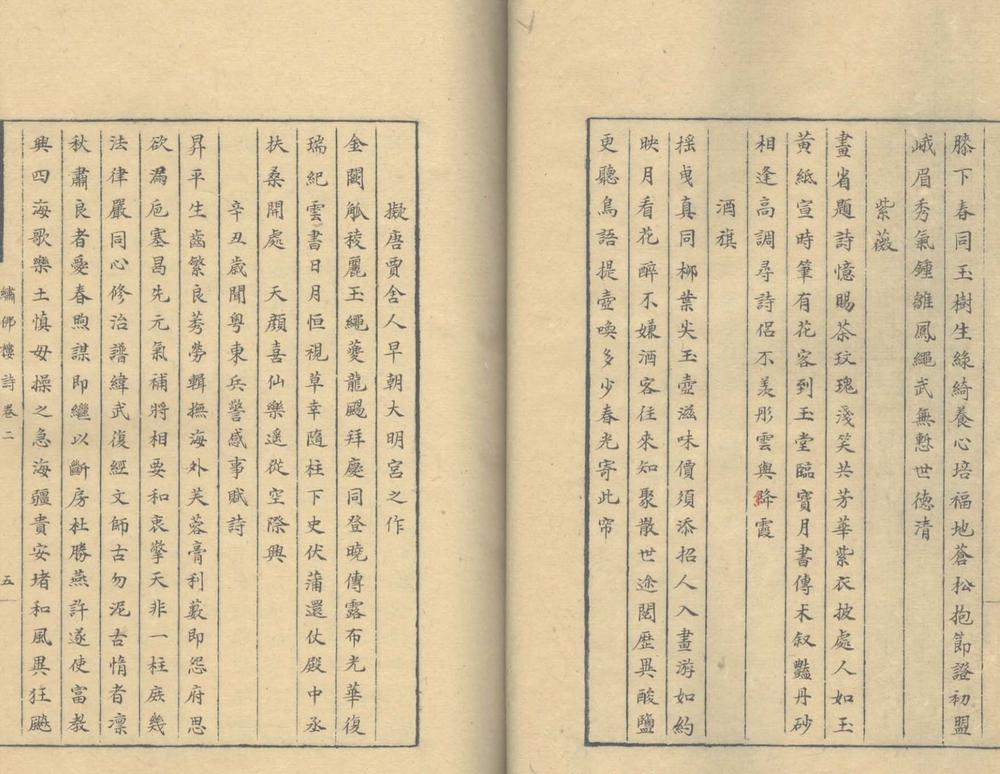 膝下春同玉樹生綠綺養心培福地蒼松抱節證初盟
峨眉秀氣鍾雛鳳繩武無慙世德清
紫薇
畫省題詩憶賜茶玟瑰淺笑共芳華紫衣披處人如玉
黃紙宣時筆有花客到玉堂臨寶月書傳朮叙豔丹砂
相逢高調尋詩侶不羨彤雲與降霞
酒旗
搖曳真同柳葉尖玉壺滋味價須添招人入畫游如約
映月看花醉不嫌酒客往來知聚散世途閱歷異酸鹽
更聽鳥語提壺喚多少春光寄此帘
擬唐賈舍人早朝大明宮之作
金闕觚稜麗玉繩夔龍颺拜慶同登曉傳露布光華復
瑞紀雲書日月恒視草幸隨柱下史伏蒲還仗殿中丞
扶桑開處　天顏喜仙樂遙從空際興
辛丑歲聞粵東兵警感事賦詩
昇平生齒繁良莠勞輯撫海外芙蓉膏利藪即怨府思
欲漏卮塞曷先元氣補將相要和衷擎天非一柱庶幾
法律嚴同心修治譜緯武復經文師古勿泥古惰者凜
秋肅良者愛春煦謀即繼以斷房杜勝燕許遂使富教
興四海歌樂土慎毋操之急海疆貴安堵和風異狂飈
繡佛樓詩卷二
五